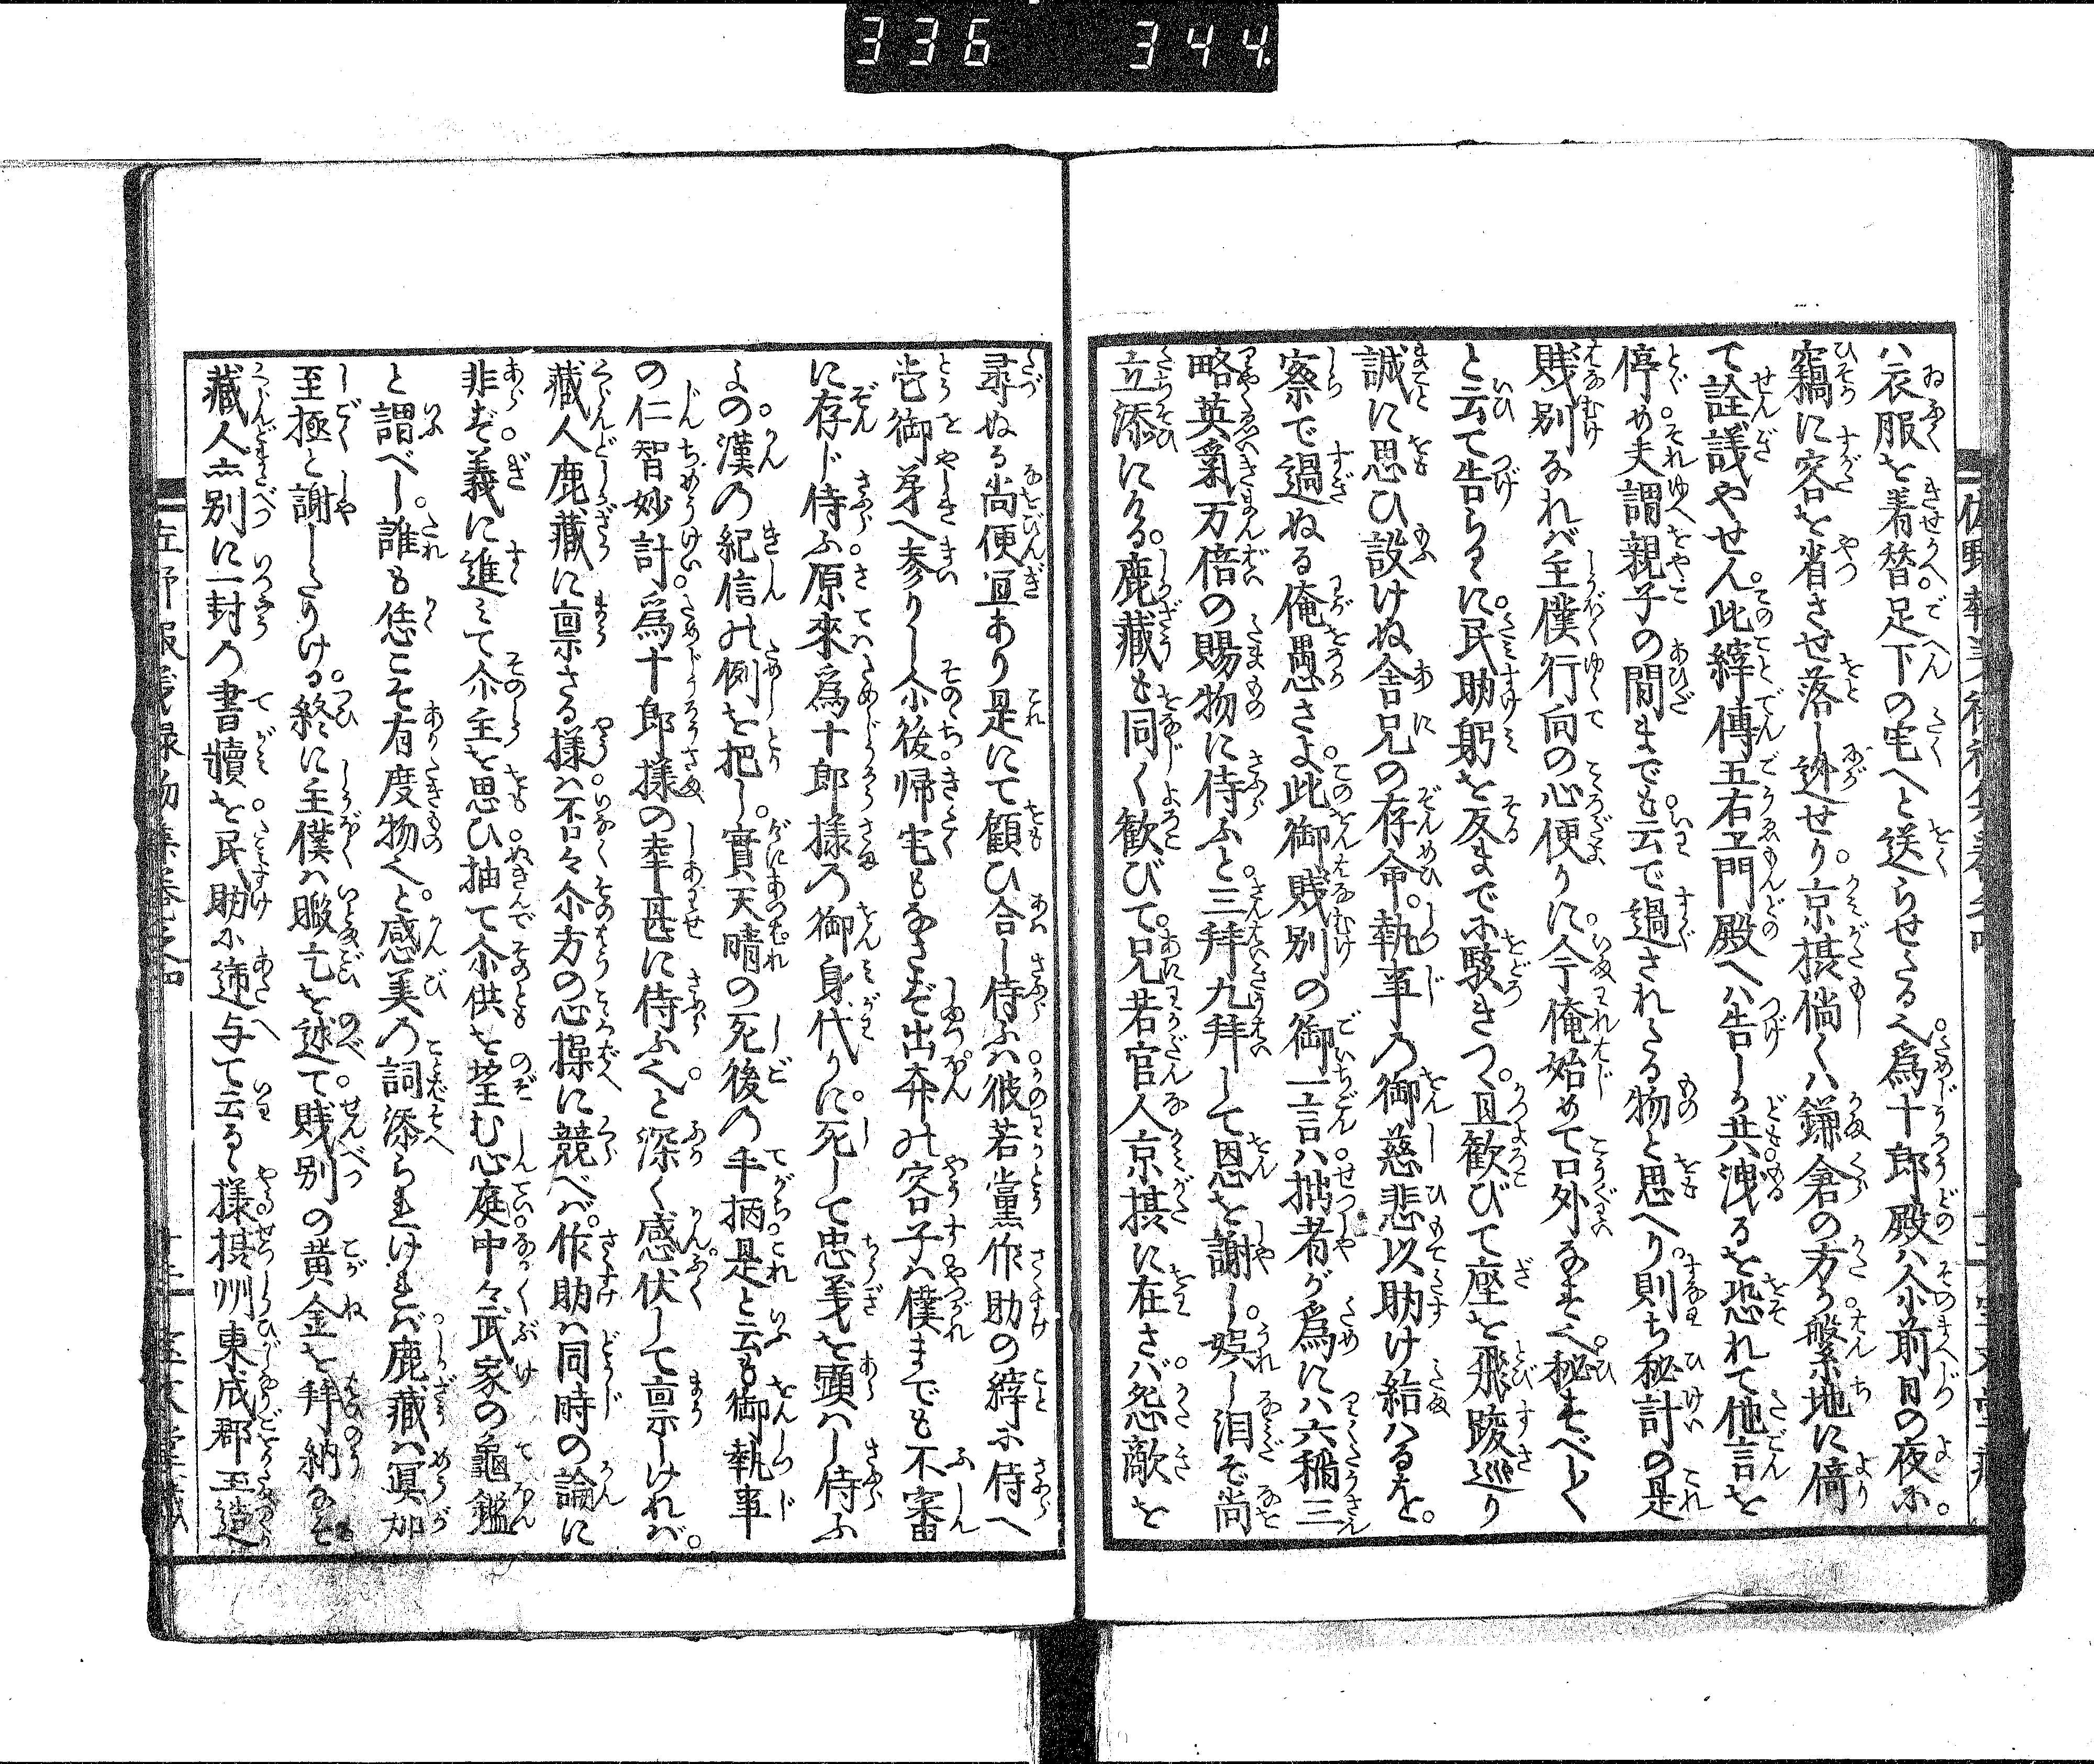 336 344
ハ衣服を着替。足下の宅へと送らせたるへ。為十郎殿ハ尒前日の夜に。
竊に容を省させ落し逊せり。京摂徜くハ鎌倉の方か。繁地に倚
て詮議やせん。此縡傳五右ヱ門殿へハ告しか共。洩るを恐れて他言を
停め。夫謂親子の間までも。云で過されたる物と思へり。則ち秘計の是
賎別なれバ主僕行向の心便りに。今俺始めて口外なすへ。秘すべしく
と云て告らるに。民助躬を反まで に駭きつ。且歓びて座を飛踆巡り
誠に思ひ設けぬ舎兄の存命。執事の御慈悲以助け給ハるを。
察で過ぬる俺愚さよ。此御賎別の御一言ハ。拙者が為にハ六稲三
略英氣万倍の賜物に侍ふと。三拝九拝して恩を謝し。娯し泪ぞ尚
立添にける。鹿藏も同く歓びて。兄若官人京摂に在さバ。怨敵を
尋ぬる尚便宜あり是にて顧ひ合し侍ふハ。彼若黨作助の縡に侍へ
壱御茅へ参りし尒後。帰宅もなさで出奔の容子ハ。僕までも不審
に存じ侍ふ。原來為十郎様の御身代りに。死して忠義を顕ハし侍ふ
よの。漢の紀信の例を把し。實天晴の死後の手柄。是と云も御執事
の仁智妙計。為十郎様の幸甚に侍ふへと。深く感伏して禀しけれバ。
藏人鹿藏に禀さる様ハ。否々尒方の心操に競べバ。作助ハ同時の論に
非ず。義に進ミて尒主を思ひ。抽て尒供を望む心庭。中々武家の龜鑑
と謂べし。誰も恁こそ有度物へと。感美の詞添られけれバ。鹿藏ハ冥加
至極と謝したりける。終に主僕ハ暇乞を述て。賎別の黄金を拝納なせ
藏人亦別に一封の書牘を。民助に逓与て云るゝ様。摂州東成郡玉造